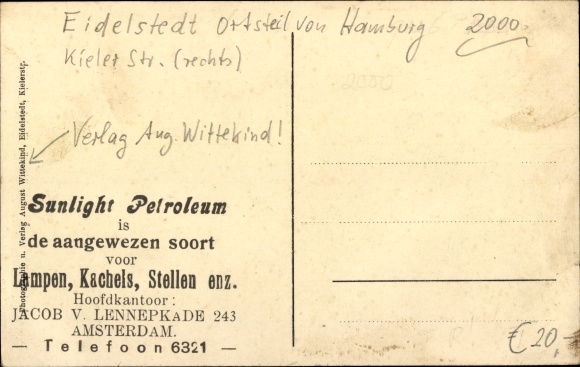 Eidelstedt Ortsteil von Hamburg 2000.
Kieler Str. (rechts)
2000
Verlag Aug. Wittekind!
Photographie u. Verlag August Wittekind, Eidelstedt, Kielerstr.
Sunlight Petroleum
is
de aangewezen soort
voor
Lampen, Kachels, Stellen enz.
Hoofdkantoor:
JACOB V. LENNEPKADE 243
AMSTERDAM.
— Telefoon 6321 —
€ 20,-